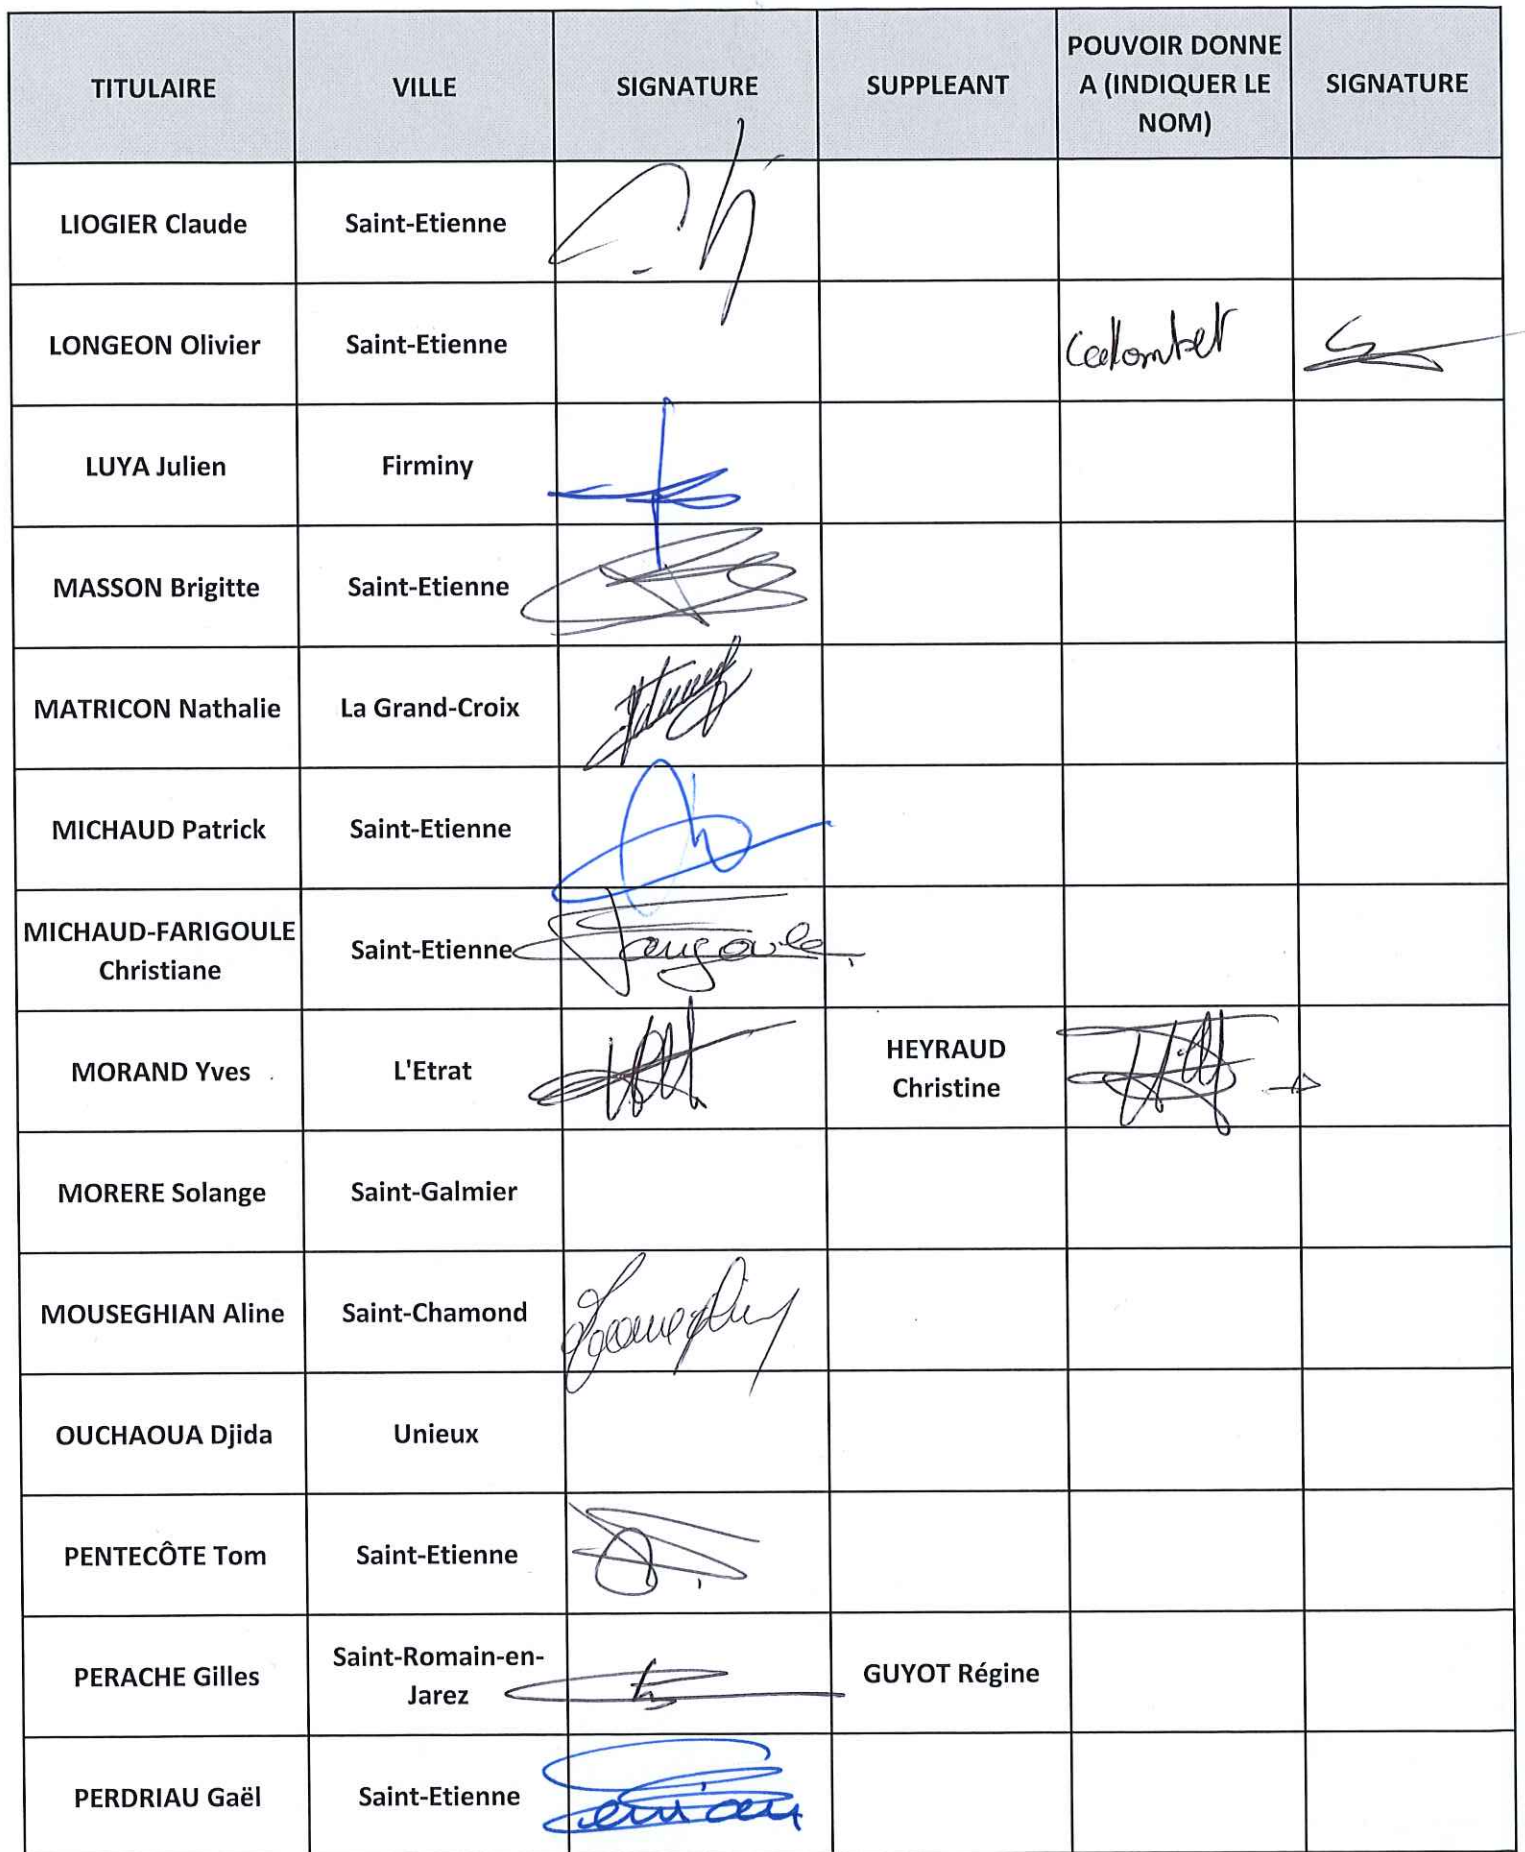 TITULAIRE
VILLE
SIGNATURE
SUPPLEANT
POUVOIR DONNE
A (INDIQUER LE
NOM)
SIGNATURE
LIOGIER Claude
Saint-Etienne
LONGEON Olivier
Saint-Etienne
LUYA Julien
Firminy
MASSON Brigitte
Saint-Etienne
MATRICON Nathalie
La Grand-Croix
MICHAUD Patrick
Saint-Etienne
MICHAUD-FARIGOULE
Christiane
Saint-Etienne
MORAND Yves
L'Etrat
HEYRAUD
Christine
MORERE Solange
Saint-Galmier
MOUSEGHIAN Aline
Saint-Chamond
OUCHAOUA Djida
Unieux
PENTECÔTE Tom
Saint-Etienne
PERACHE Gilles
Saint-Romain-en-
Jarez
GUYOT Régine
PERDRIAU Gaël
Saint-Etienne